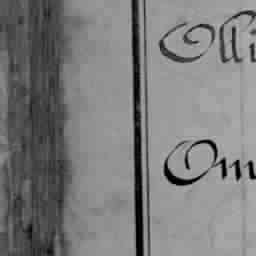 Olli
Om